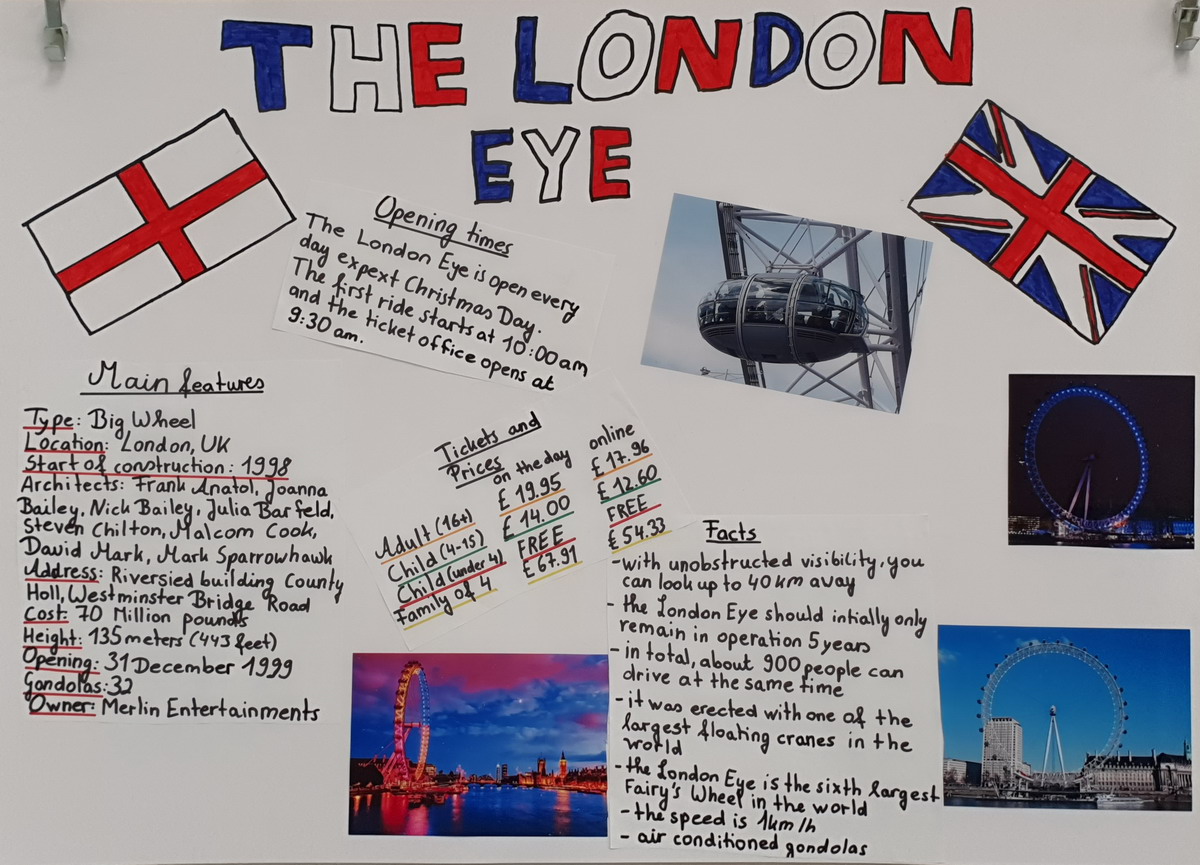 THE LONDON
EYE
Opening times
The London Eye is open every
day expext Christmas Day.
The first ride starts at 10:00am
and the ticket office opens at
9:30 am.
Main features
Type: Big Wheel
Location: London, UK
Start of construction: 1998
Architects: Frank Anatol, Joanna
Bailey, Nick Bailey, Julia Barfeld,
Steven Chilton, Malcom Cook,
David Mark, Mark Sparrowhawk
Address: Riversied building County
Holl, Westminster Bridge Road
Cost: 70 Million pounds
Height: 135 meters (443 feet)
Opening: 31 December 1999
Gondolas: 32
Owner: Merlin Entertainments
Tickets and
Prices
on the day online
Adult (16+) £ 19.95 £ 17.96
Child (4-15) £ 14.00 £ 12.60
Child (under 4) FREE FREE
Family of 4 £ 67.91 £ 54.33
Facts
- with unobstructed visibility, you
can look up to 40 km avay
- the London Eye should intially only
remain in operation 5 years
- in total, about 900 people can
drive at the same time
- it was erected with one of the
largest floating cranes in the
world
- the London Eye is the sixth largest
Fairy's Wheel in the world
- the speed is 1km/h
- air conditioned gondolas